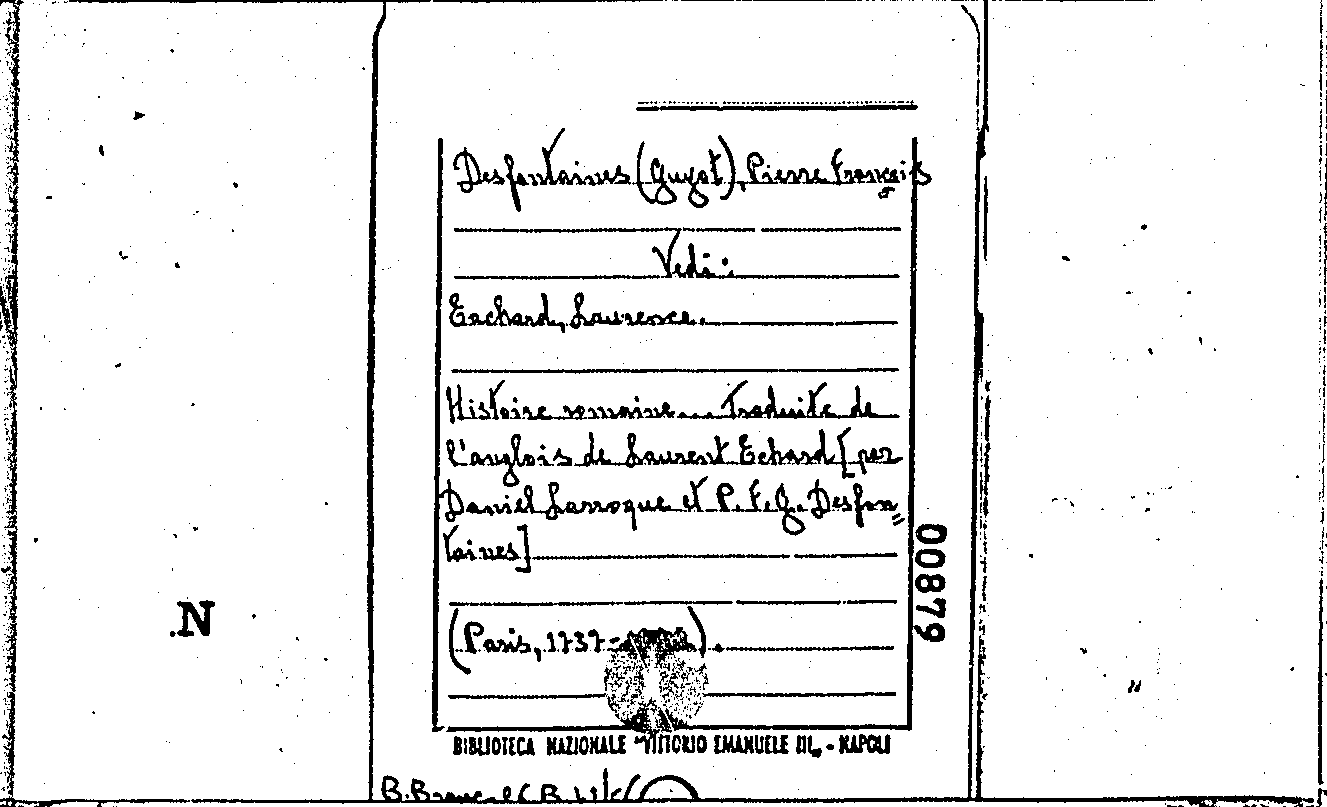 Desfontaines (Guyot), Pierre François
Vedi:
Enchard, Laurence.
Histoire romaine... Traduite de
l'anglois de Laurent Echard [par
Daniel Larroque et P. F. G. Desfon=
taines]
(Paris, 1737-
).
00879
.N
BIBLIOTECA NAZIONALE "VITTORIO EMANUELE III„ - NAPOLI